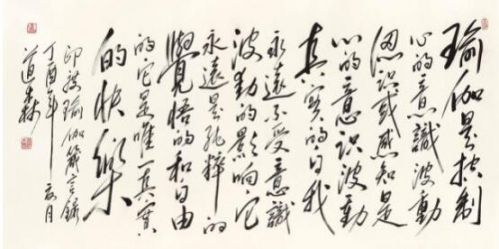 瑜伽是控制
心的意識波動
認识或感知是
心的意识波動
真实的自我
永遠不受意識
波動的影响它
永遠是純粹的
覺悟的和自由
的它是唯一真實
的快樂
印度瑜伽箴言録
丁酉年亥月
道森